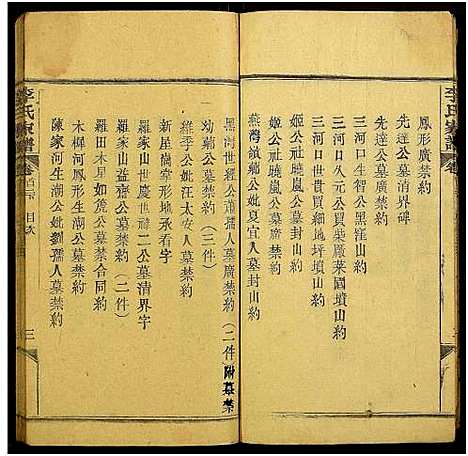 李氏家譜
鳳形廣禁約
先達公墓清界碑
先達公墓廣禁約
三河口生智公黑窪山約
三河口久元公買柴厰菜園墳山約
三河口世貴買細地坪墳山約
姬公社曉嵐公墓封山約
姬公曉嵐公墓禁約
燕灣嶺輔公妣夏宜人墓封山約
黑灣世經公蕭孺人墓廣禁約(二件)附墓禁
幼輔公墓禁約(三件)
維季公妣汪太安人墓禁約
新屋衖掌形地承字
羅家山世慶世祥二公墓清界字
羅家山益齋公墓禁約(二件)
羅田木星如篪公墓禁合同約
木樨河鳳形生潮公墓禁約
陳家河生潮公妣劉孺人墓禁約
李氏家譜 卷首 目次 三